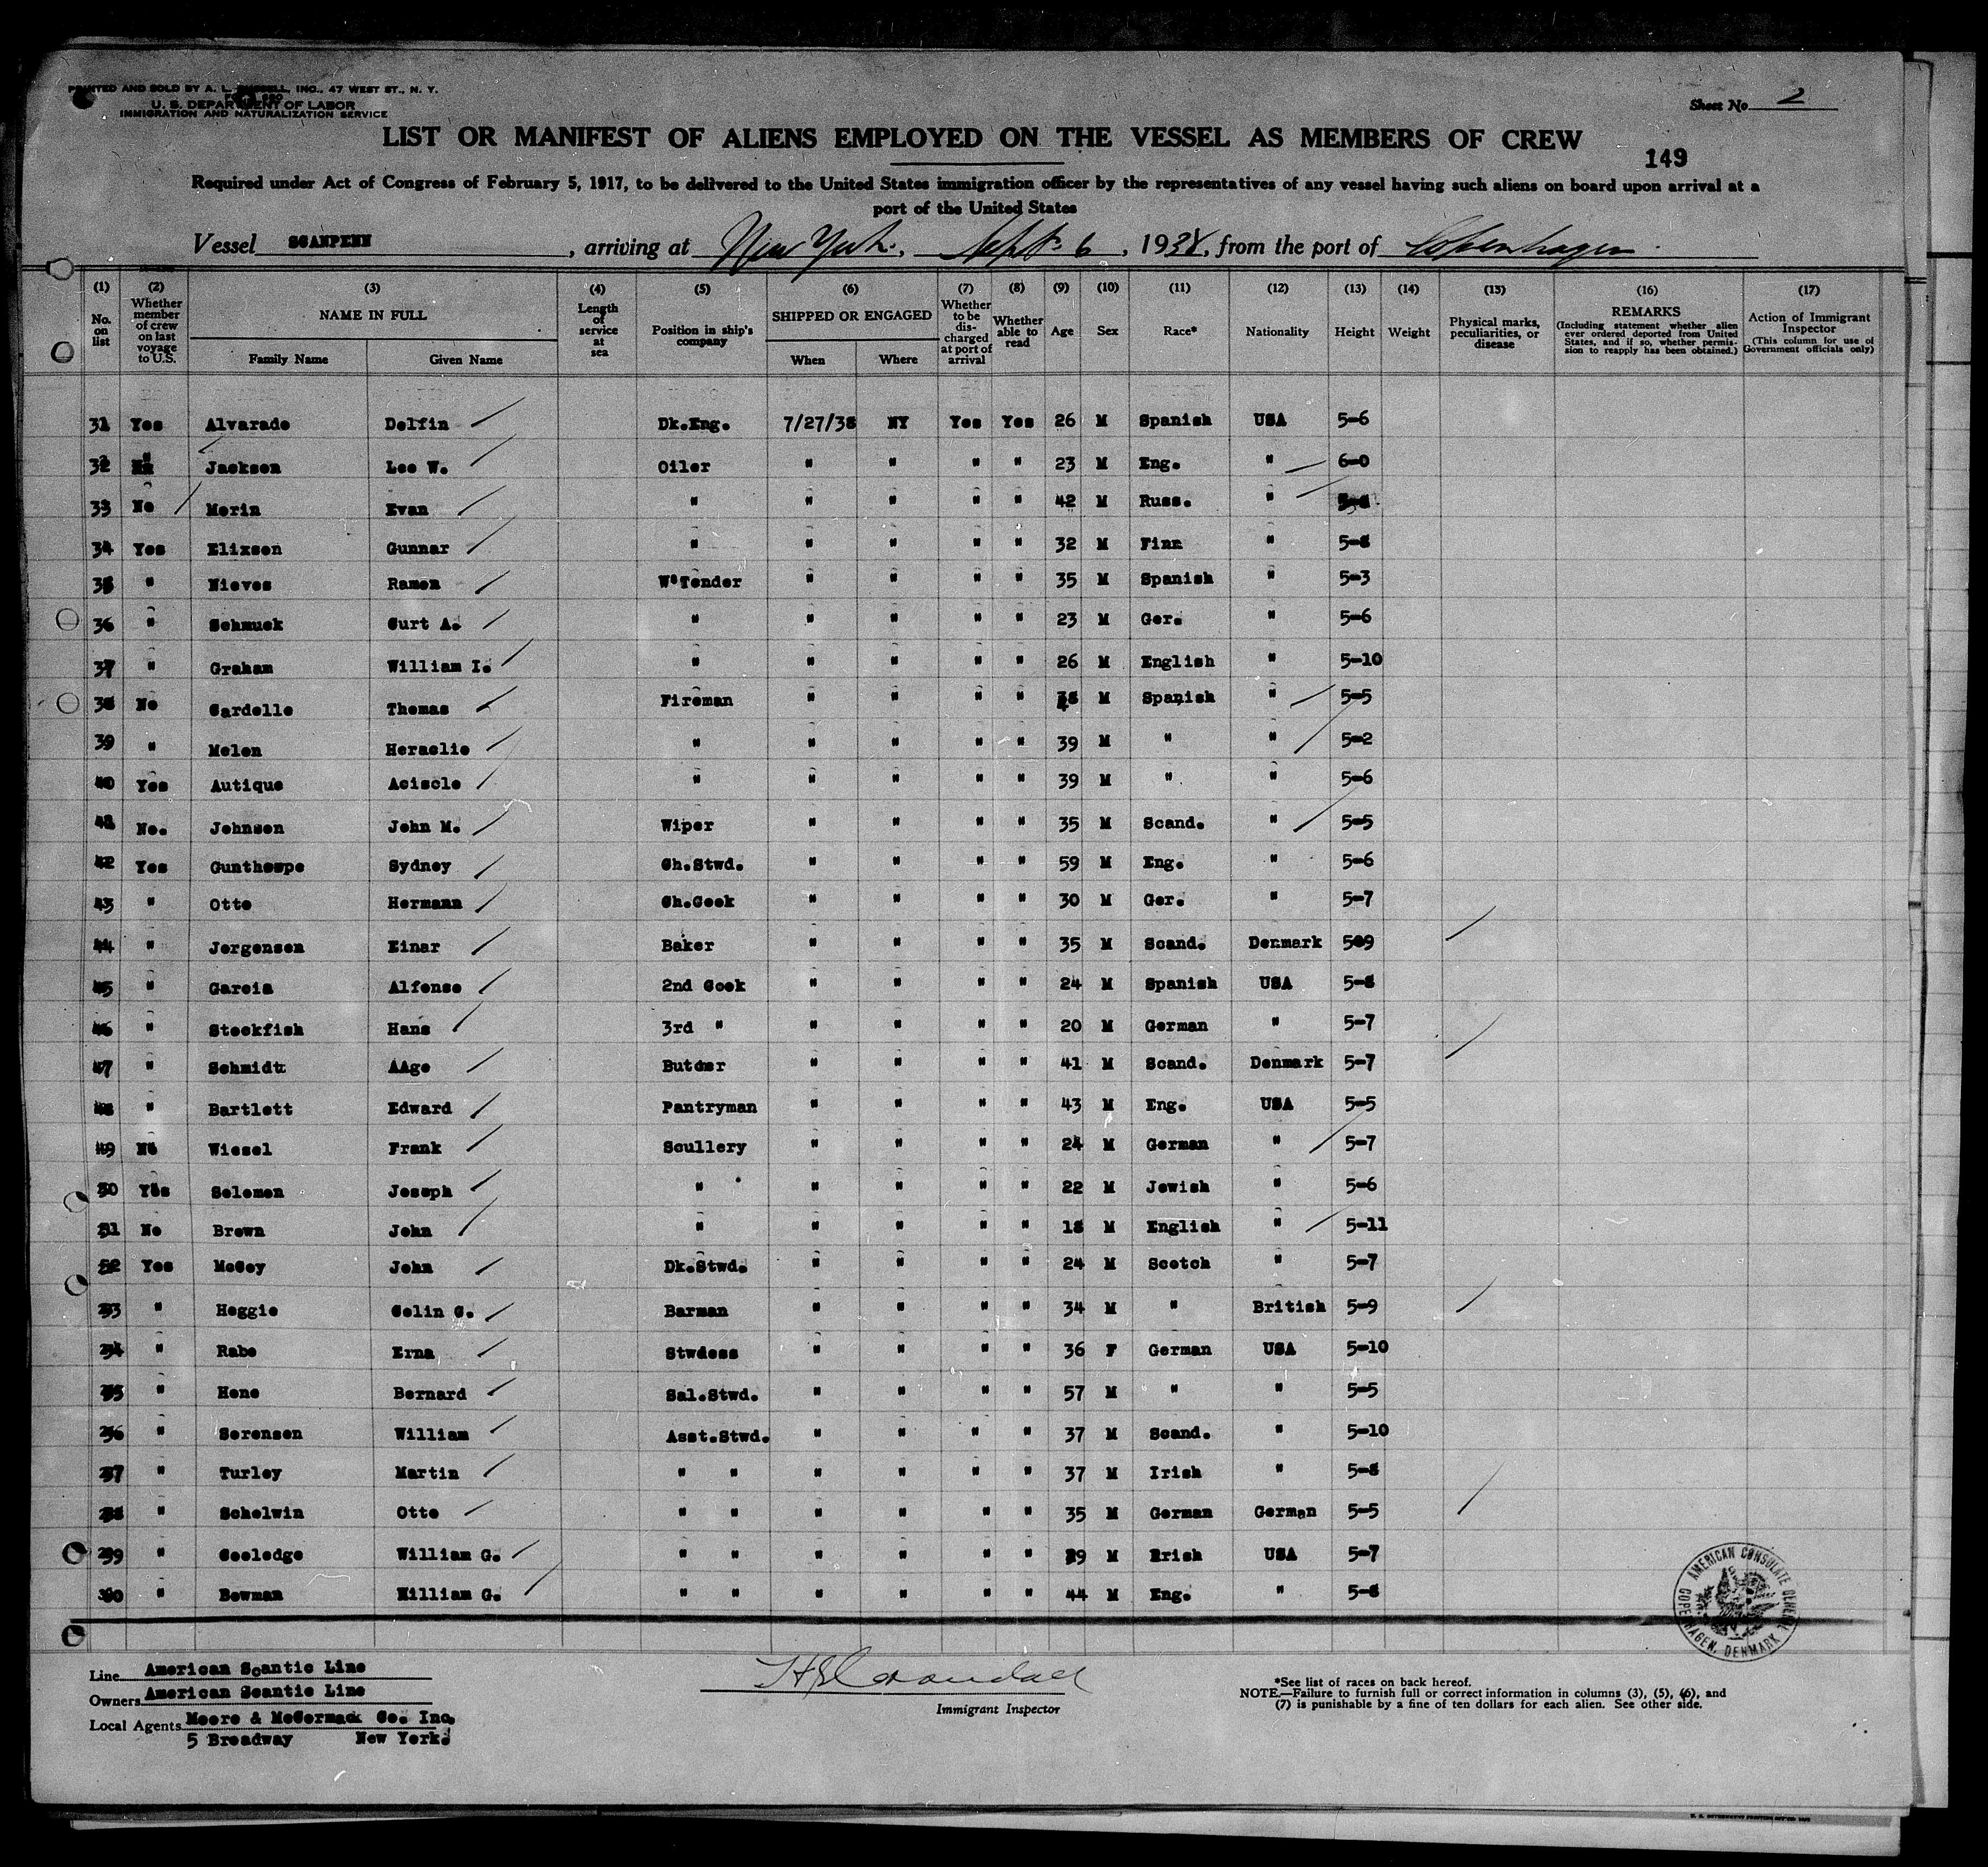 PRINTED AND SOLD BY A. L. RUSSELL, INC., 47 WEST ST., N. Y.
U. S. DEPARTMENT OF LABOR
IMMIGRATION AND NATURALIZATION SERVICE
Sheet No. 2
LIST OR MANIFEST OF ALIENS EMPLOYED ON THE VESSEL AS MEMBERS OF CREW
149
Required under Act of Congress of February 5, 1917, to be delivered to the United States immigration officer by the representatives of any vessel having such aliens on board upon arrival at a
port of the United States
Vessel SCANPENN, arriving at New York, Sept 6, 1938, from the port of Copenhagen.
(1) No. on list (2) Whether member of crew on last voyage to U.S. (3) NAME IN FULL Family Name Given Name (4) Length of service at sea (5) Position in ship's company (6) SHIPPED OR ENGAGED When Where (7) Whether to be discharged at port of arrival (8) Whether able to read (9) Age (10) Sex (11) Race* (12) Nationality (13) Height (14) Weight (15) Physical marks, peculiarities, or disease (16) REMARKS (Including statement whether alien ever ordered deported from United States, and if so, whether permission to reapply has been obtained.) (17) Action of Immigrant Inspector (This column for use of Government officials only)
31 Yes Alvarado Delfin Dk.Eng. 7/27/38 NY Yes Yes 26 M Spanish USA 5-6
32 " Jackson Lee W. Oiler " " " " 23 M Eng. " 6-0
33 No Morin Evan " " " " " 42 M Russ. "
34 Yes Elixson Gunnar " " " " " 32 M Finn " 5-8
35 " Nieves Ramon W'Tender " " " " 35 M Spanish " 5-3
36 " Schmuck Curt A. " " " " " 23 M Ger. " 5-6
37 " Graham William I. " " " " " 26 M English " 5-10
38 No Cardelle Thomas Fireman " " " " M Spanish " 5-5
39 " Melon Heraclio " " " " " 39 M " " 5-2
40 Yes Autique Acisclo " " " " " 39 M " " 5-6
41 No. Johnson John M. Wiper " " " " 35 M Scand. " 5-5
42 Yes Gunthorpe Sydney Ch.Stwd. " " " " 59 M Eng. " 5-6
43 " Otto Hermann Ch.Cook " " " " 30 M Ger. " 5-7
44 " Jorgensen Einar Baker " " " " 35 M Scand. Denmark 5-9
45 " Garcia Alfonso 2nd Cook " " " " 24 M Spanish USA 5-8
46 " Stockfish Hans 3rd " " " " " 20 M German " 5-7
47 " Schmidt AAge Butcher " " " " 41 M Scand. Denmark 5-7
48 " Bartlett Edward Pantryman " " " " 43 M Eng. USA 5-5
49 No Wiesel Frank Scullery " " " " 24 M German " 5-7
50 Yes Solomon Joseph " " " " " 22 M Jewish " 5-6
51 No Brown John " " " " " 18 M English " 5-11
52 Yes McCoy John Dk.Stwd. " " " " 24 M Scotch " 5-7
53 " Heggie Colin C. Barman " " " " 34 M " British 5-9
54 " Rabe Erna Stwdess " " " " 36 F German USA 5-10
55 " Hone Bernard Sal.Stwd. " " " " 57 M " " 5-5
56 " Sorensen William Asst.Stwd. " " " " 37 M Scand. " 5-10
57 " Turley Martin " " " " " " 37 M Irish " 5-8
58 " Scholwin Otto " " " " " " 35 M German German 5-5
59 " Cooledge William G. " " " " " " 29 M Irish USA 5-7
60 " Bowman William G. " " " " " " 44 M Eng. " 5-8
AMERICAN CONSULATE GENERAL COPENHAGEN, DENMARK
Line American Scantic Line
Owners American Scantic Line
Local Agents Moore & McCormack Co. Inc.
5 Broadway New York.
Immigrant Inspector
*See list of races on back hereof.
NOTE.—Failure to furnish full or correct information in columns (3), (5), (6), and
(7) is punishable by a fine of ten dollars for each alien. See other side.